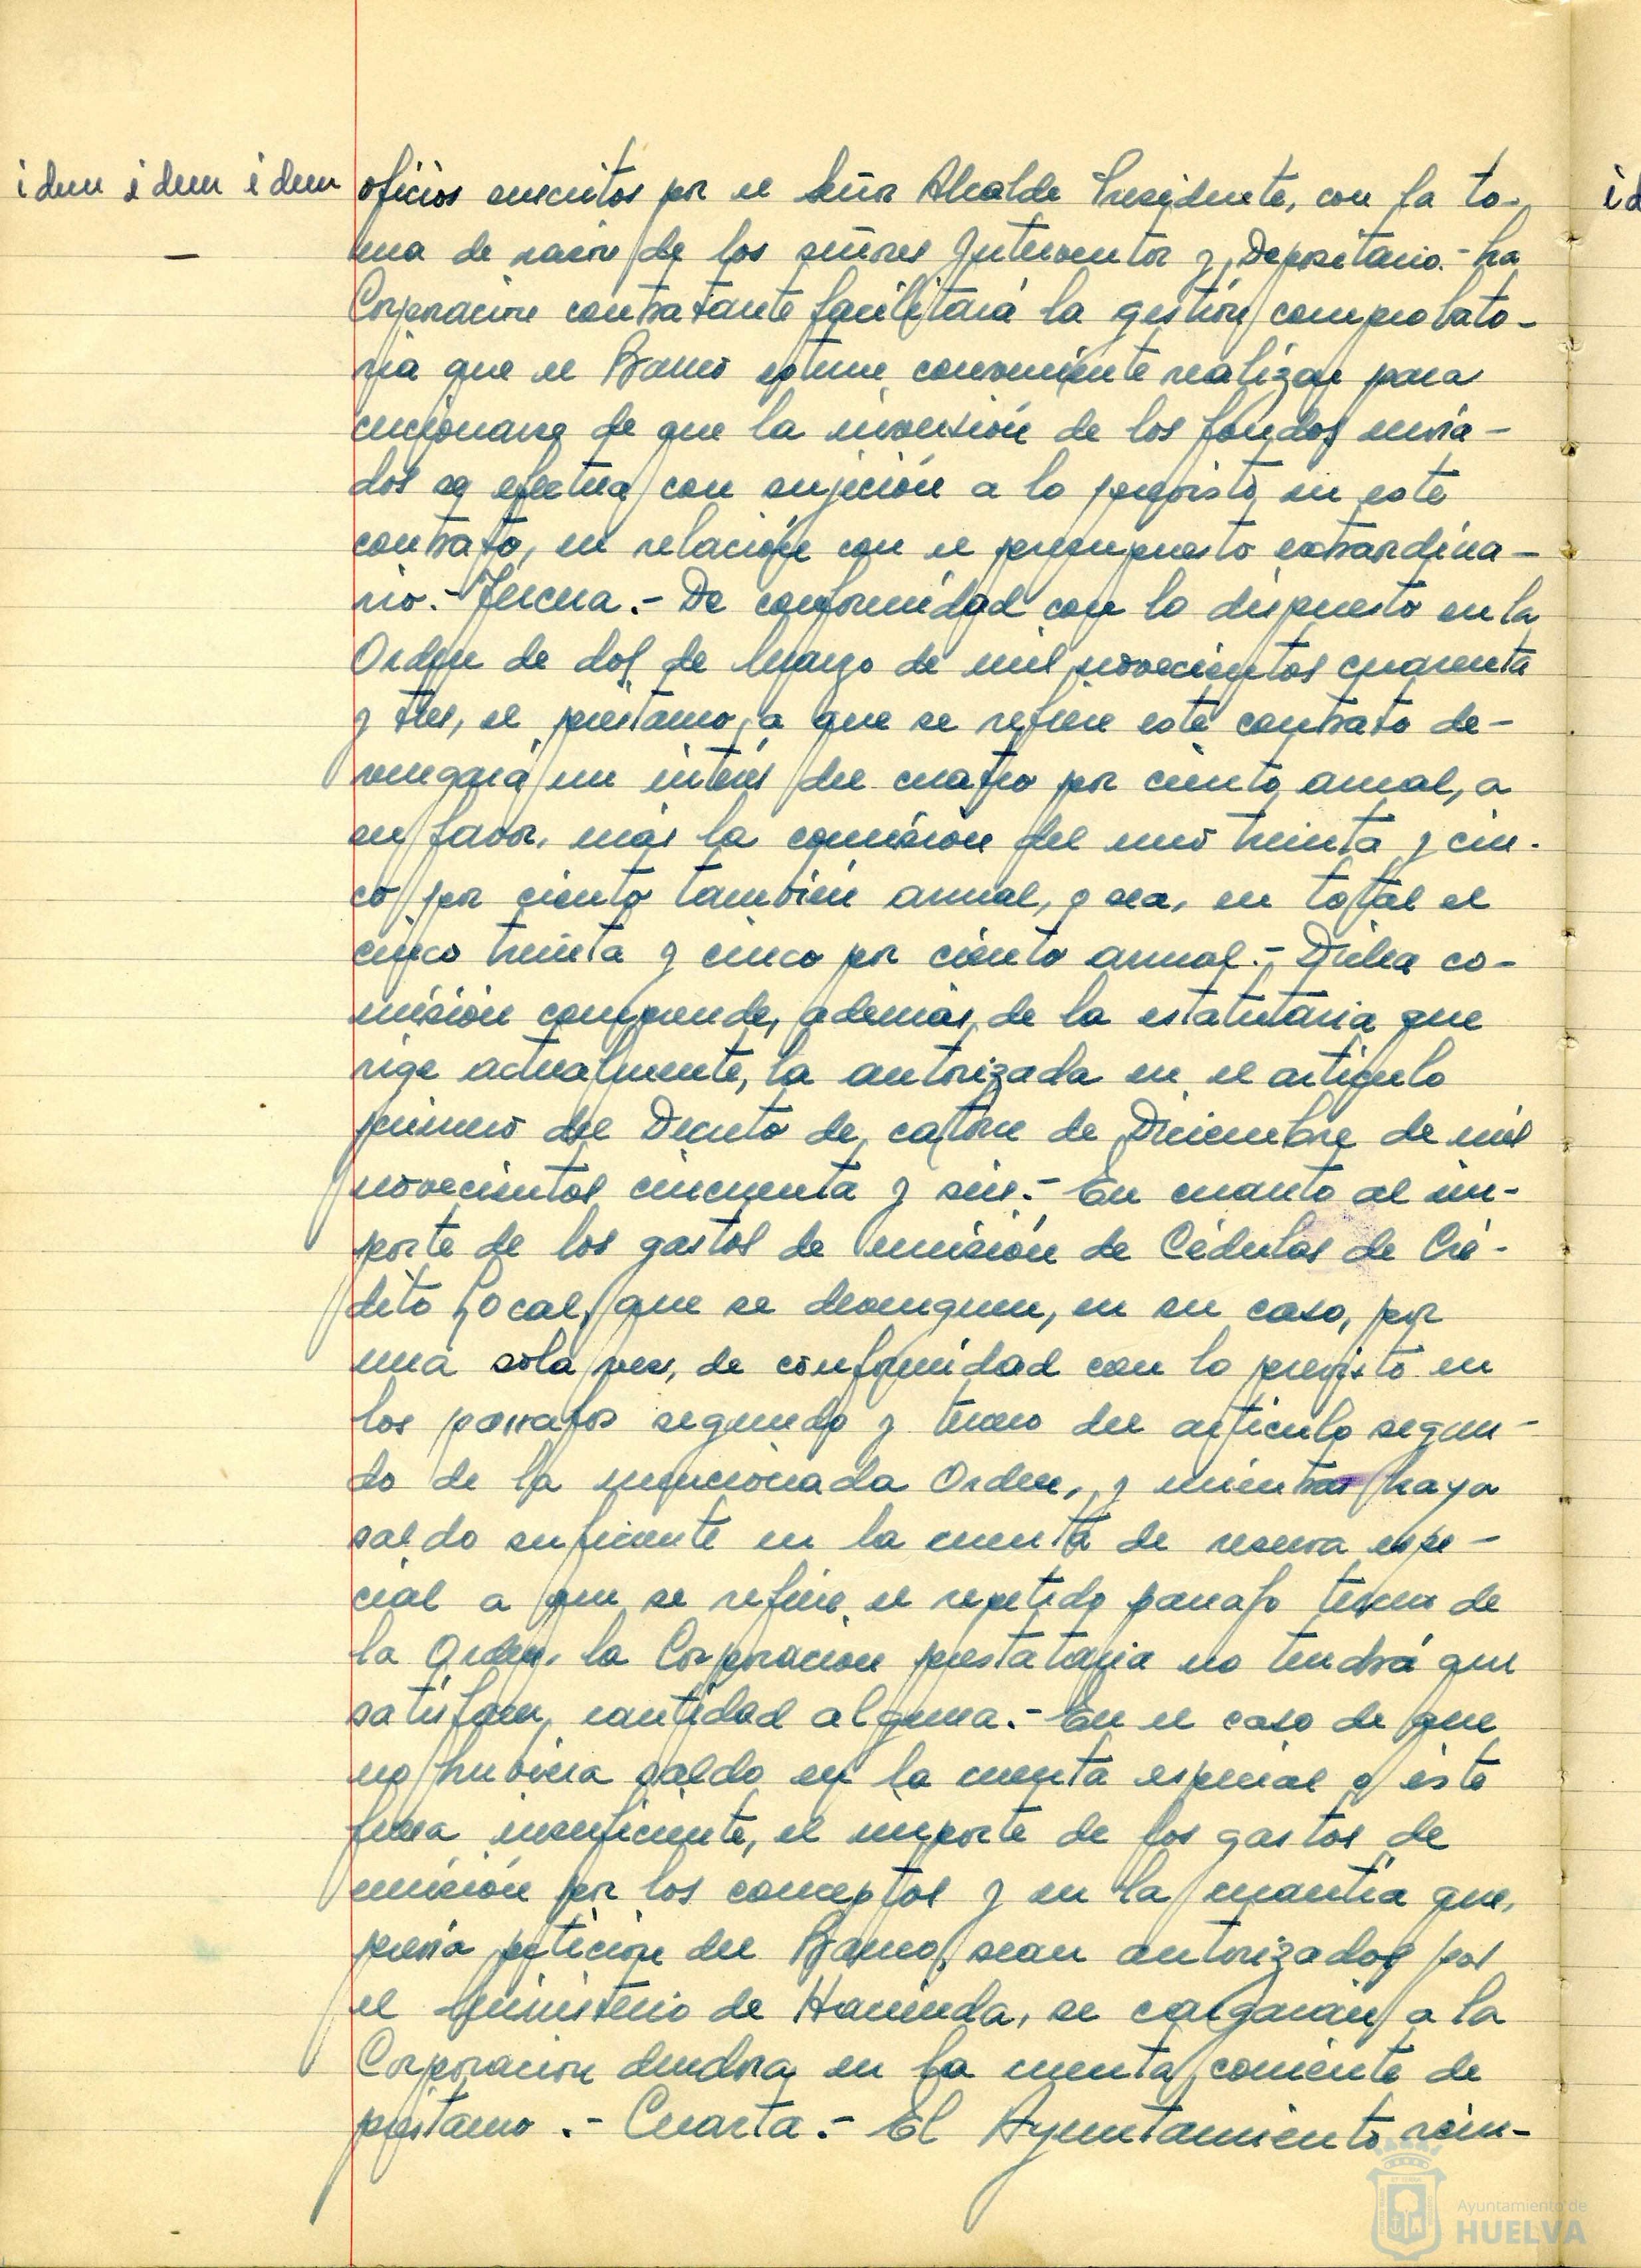 idem idem idem
oficios suscritos por el Señor Alcalde Presidente, con la to-
ma de razón de los señores Interventor y Depositario.- La
Corporación contratante facilitará la gestión comprobato-
ria que el Banco estime conveniente realizar para
cercionarse de que la inversión de los fondos envia-
dos se efectua con sujeción a lo previsto en este
contrato, en relación con el presupuesto extraordina-
rio.- Tercera.- De conformidad con lo dispuesto en la
Orden de dos de Marzo de mil novecientos cuarenta
y tres, el préstamo a que se refiere este contrato de-
vengará un interés del cuatro por ciento anual, a
su favor, más la comisión del uno treinta y cin-
co por ciento también anual, o sea, en total el
cinco treinta y cinco por ciento anual.- Dicha co-
misión comprende, además de la estatutaria que
rige actualmente, la autorizada en el artículo
primero del Decreto de catorce de Diciembre de mil
novecientos cincuenta y seis.- En cuanto al im-
porte de los gastos de emisión de Cédulas de Cré-
dito Local, que se devenguen, en su caso, por
una sola vez, de conformidad con lo previsto en
los párrafos segundo y tercero del artículo segun-
do de la mencionada Orden, y mientras haya
saldo suficiente en la cuenta de reserva espe-
cial a que se refiere el repetido parrafo tercero de
la Orden, la Corporación prestataria no tendrá que
satisfacer cantidad alguna.- En el caso de que
no hubiera saldo en la cuenta especial o éste
fuera insuficiente, el importe de los gastos de
emisión por los conceptos y en la cuantía que,
previa petición del Banco, sean autorizados por
el Ministerio de Hacienda, se cargarán a la
Corporación deudora en la cuenta corriente de
préstamo.- Cuarta.- El Ayuntamiento rein-
id
Ayuntamiento de
HUELVA